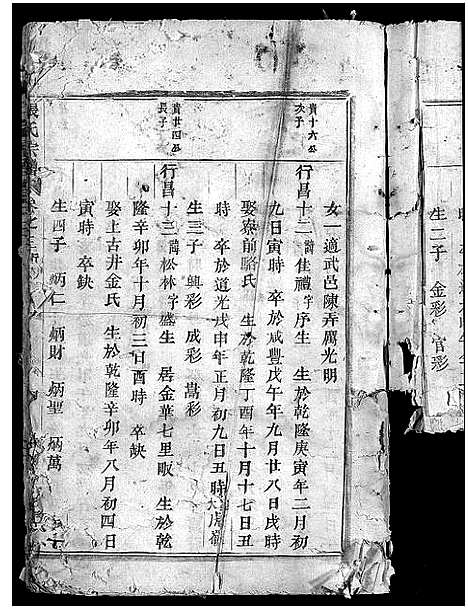 生二子 金彩 官彩
女一適武邑陳弄厲光明
貴十六公
次子
行昌十二 諱佳禮 字序生 生於乾隆庚寅年二月初
九日寅時 卒於咸豐戊午年九月廿八日戌時
娶寮前賂氏 生於乾隆丁酉年十月十七日丑
時 卒於道光戊申年正月初九日丑時
生三子 興彩 成彩 嵩彩
貴廿四公
長子
行昌十三 諱松林 字盛生 居金華七里畈 生於乾
隆辛卯年十月初三日酉時 卒缺
娶上古井金氏 生於乾隆辛卯年八月初四日
寅時 卒缺
生四子 炳仁 炳財 炳聖 炳萬
張氏宗譜